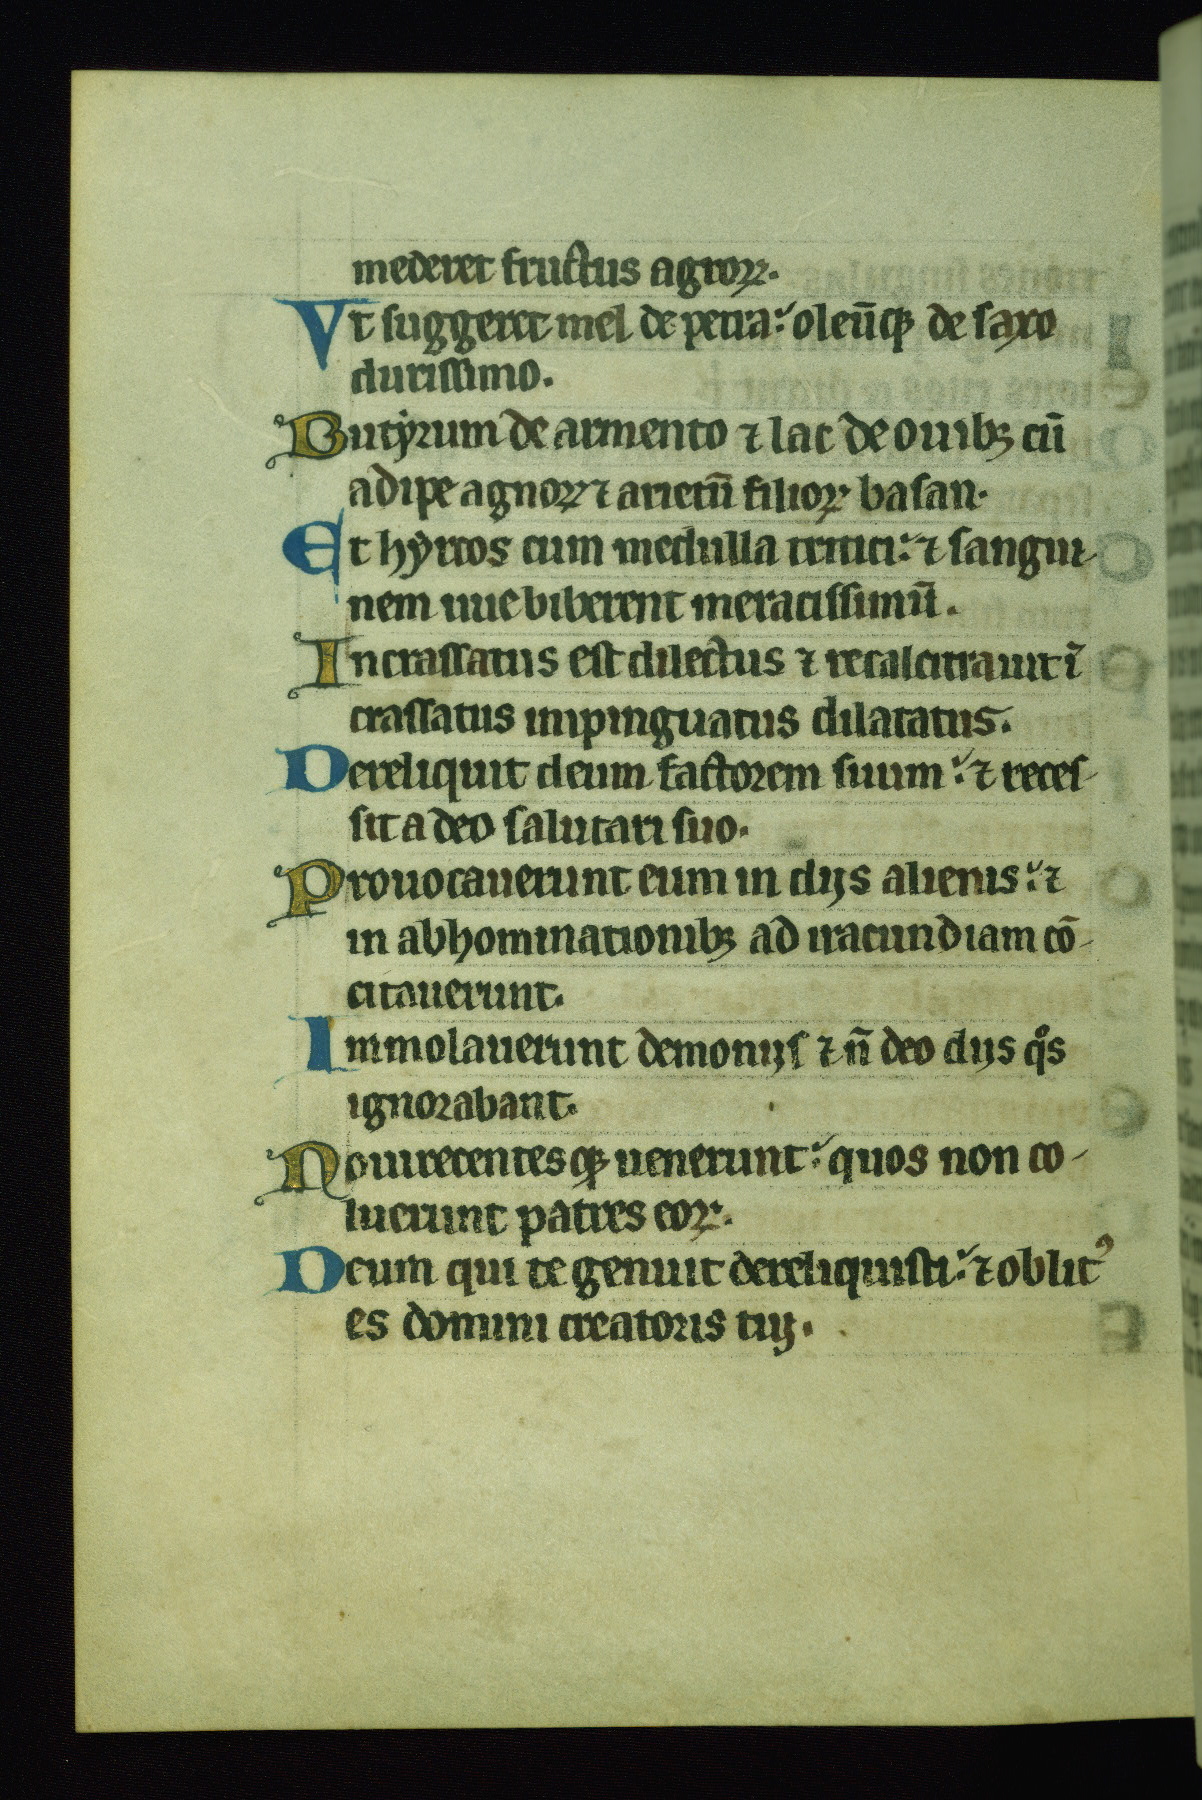 mederet fructus agroꝝ.
Vt suggeret mel de petra: oleūqꝫ de saxo
durissimo.
Butẏrum de armento ⁊ lac de ouibꝫ cū
adipe agnoꝝ ⁊ arietū filioꝝ basan.
Et hẏrcos cum medulla tritici: ⁊ sangui-
nem uue biberent meracissimū.
Incrassatus est dilectus ⁊ recalcitrauit ī
crassatus inpinguatus dilatatus.
Dereliquit deum factorem suum: ⁊ reces-
sit a deo salutari suo.
Prouocauerunt eum in dijs alienis: ⁊
in abhominationibꝫ ad iracundiam cō-
citauerunt.
Immolauerunt demonijs ⁊ n̄ deo dijs qͦs
ignorabant.
Noui recentesqꝫ uenerunt: quos non co-
luerunt patres eoꝝ.
Deum qui te genuit dereliquisti: ⁊ oblitꝰ
es domini creatoris tuj.